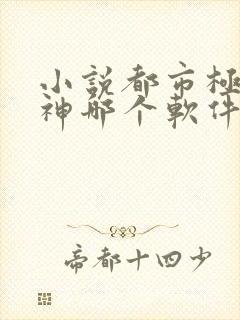 小説都市極
神那个軟件
帝都十四少